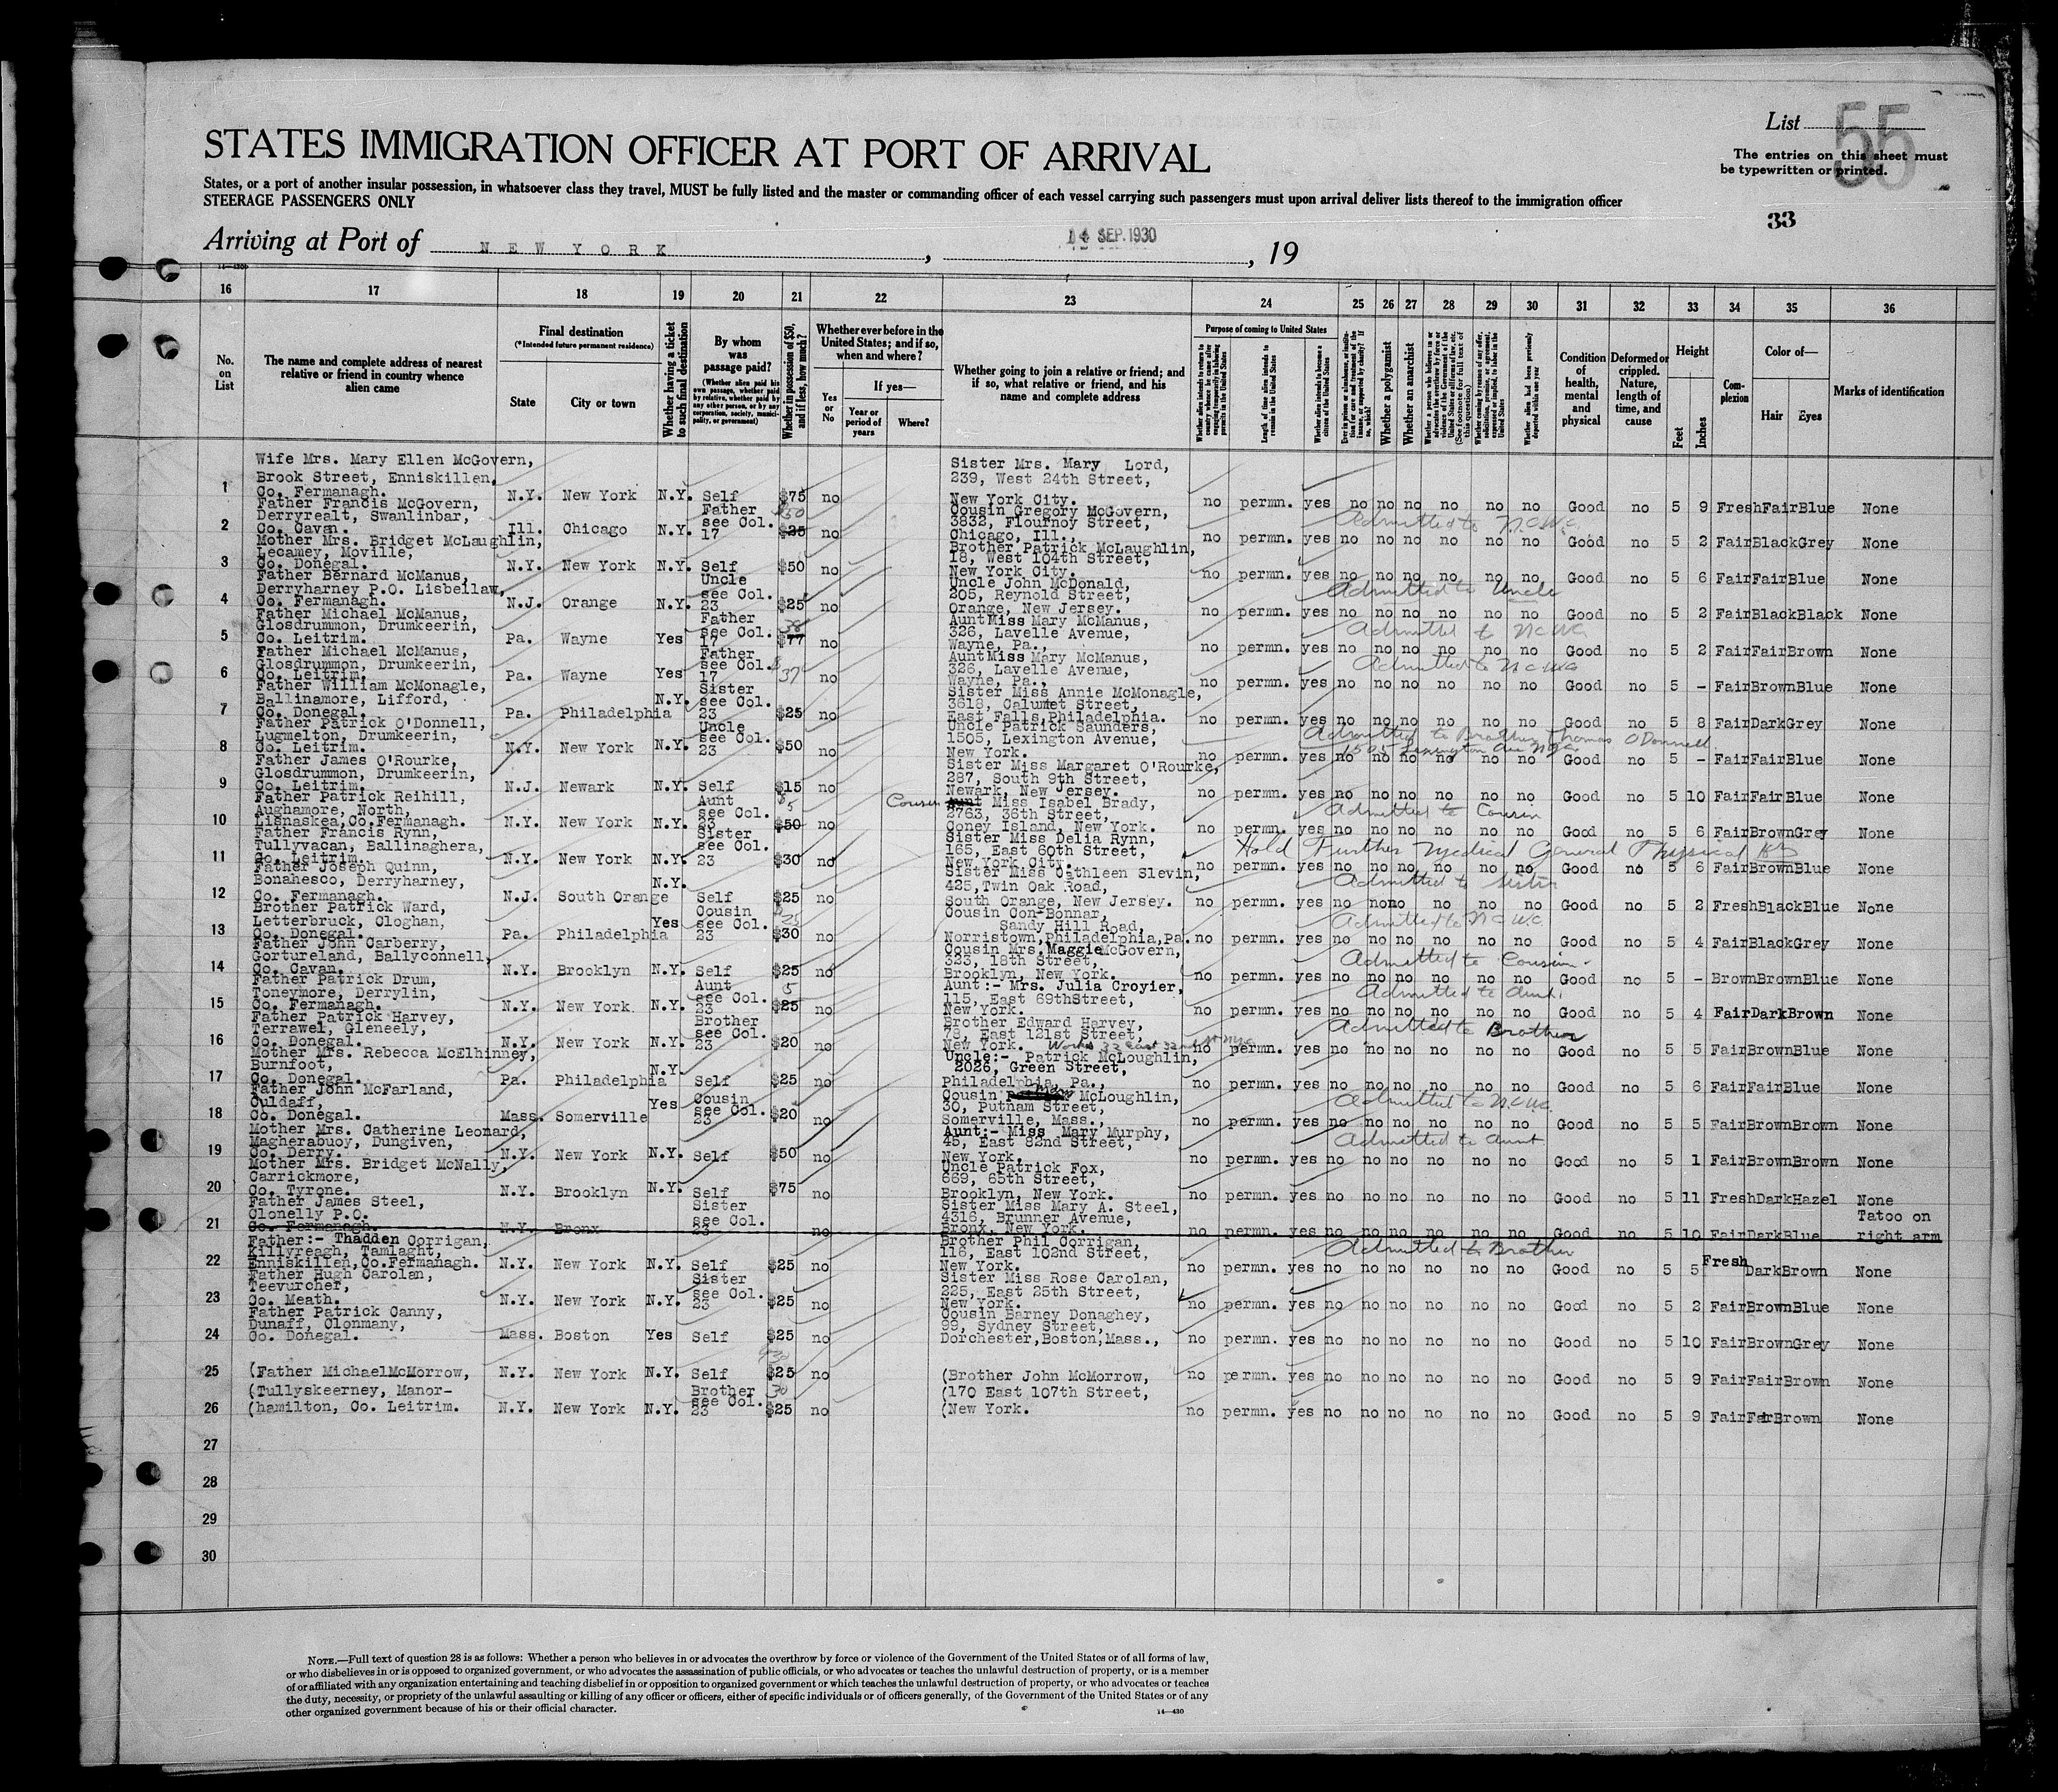 List
55
The entries on this sheet must
be typewritten or printed.
33
STATES IMMIGRATION OFFICER AT PORT OF ARRIVAL
States, or a port of another insular possession, in whatsoever class they travel, MUST be fully listed and the master or commanding officer of each vessel carrying such passengers must upon arrival deliver lists thereof to the immigration officer
STEERAGE PASSENGERS ONLY
Arriving at Port of NEW YORK, 14 SEP. 1930, 19
14-430
16 17 18 19 20 21 22 23 24 25 26 27 28 29 30 31 32 33 34 35 36
No. on List
The name and complete address of nearest relative or friend in country whence alien came
Final destination
(*Intended future permanent residence)
State
City or town
Whether having a ticket to such final destination
By whom was passage paid?
(Whether alien paid his own passage, whether paid by relative, whether paid by any other person, or by any corporation, society, municipality, or government)
Whether in possession of $50, and if less, how much?
Whether ever before in the United States; and if so, when and where?
Yes or No
If yes—
Year or period of years
Where?
Whether going to join a relative or friend; and if so, what relative or friend, and his name and complete address
Purpose of coming to United States
Length of time alien intends to remain in the United States
Whether alien intends to become a citizen of the United States
Whether a polygamist
Whether an anarchist
Condition of health, mental and physical
Deformed or crippled. Nature, length of time, and cause
Height
Feet
Inches
Complexion
Color of—
Hair
Eyes
Marks of identification
1 Wife Mrs. Mary Ellen McGovern, Brook Street, Enniskillen, Co. Fermanagh. N.Y. New York N.Y. Self $75 no Sister Mrs. Mary Lord, 239, West 24th Street, New York City. no permn. yes no no no no no no Good no 5 9 Fresh Fair Blue None
2 Father Francis McGovern, Derryrealt, Swanlinbar, Co. Cavan. Ill. Chicago N.Y. Father see Col. 17 $50 $25 no Cousin Gregory McGovern, 3832, Flournoy Street, Chicago, Ill., no permn. yes no no no no no no Good no 5 2 Fair Black Grey None
Admitted to N.C.W.C.
3 Mother Mrs. Bridget McLaughlin, Lecamey, Moville, Co. Donegal. N.Y. New York N.Y. Self $50 no Brother Patrick McLaughlin, 18, West 104th Street, New York City. no permn. yes no no no no no no Good no 5 6 Fair Fair Blue None
4 Father Bernard McManus, Derryharney P.O. Lisbellaw, Co. Fermanagh. N.J. Orange N.Y. Uncle see Col. 23 $25 no Uncle John McDonald, 205, Reynold Street, Orange, New Jersey. no permn. yes no no no no no no Good no 5 2 Fair Black Black None
Admitted to Uncle
5 Father Michael McManus, Glosdrummon, Drumkeerin, Co. Leitrim. Pa. Wayne Yes Father see Col. 17 $77 no Aunt Miss Mary McManus, 326, Lavelle Avenue, Wayne, Pa., no permn. yes no no no no no no Good no 5 2 Fair Fair Brown None
Admitted to NCWC
6 Father Michael McManus, Glosdrummon, Drumkeerin, Co. Leitrim. Pa. Wayne Yes Father see Col. 17 $37 no Aunt Miss Mary McManus, 326, Lavelle Avenue, Wayne, Pa., no permn. yes no no no no no no Good no 5 - Fair Brown Blue None
Admitted to NCWC
7 Father William McMonagle, Ballinamore, Lifford, Co. Donegal. Pa. Philadelphia N.Y. Sister see Col. 23 $25 no Sister Miss Annie McMonagle, 3618, Calumet Street, East Falls, Philadelphia. no permn. yes no no no no no no Good no 5 8 Fair Dark Grey None
8 Father Patrick O'Donnell, Lugmelton, Drumkeerin, Co. Leitrim. N.Y. New York N.Y. Uncle see Col. 23 $50 no Uncle Patrick Saunders, 1505, Lexington Avenue, New York. no permn. yes no no no no no no Good no 5 - Fair Fair Blue None
Admitted to Brother Thomas O'Donnell
1505 Lexington Ave NYC.
9 Father James O'Rourke, Glosdrummon, Drumkeerin, Co. Leitrim. N.J. Newark N.Y. Self $15 no Sister Miss Margaret O'Rourke, 287, South 9th Street, Newark, New Jersey. no permn. yes no no no no no no Good no 5 10 Fair Fair Blue None
10 Father Patrick Reihill, Aughamore, North, Lisnaskea, Co. Fermanagh. N.Y. New York N.Y. Aunt see Col. 23 $5 $50 no Cousin Aunt Miss Isabel Brady, 2763, 36th Street, Coney Island, New York. no permn. yes no no no no no no Good no 5 6 Fair Brown Grey None
Admitted to Cousin
11 Father Francis Rynn, Tullyvacan, Ballinaghera, Co. Leitrim. N.Y. New York N.Y. Sister see Col. 23 $30 no Sister Miss Delia Rynn, 165, East 60th Street, New York City. no permn. yes no no no no no no Good no 5 6 Fair Brown Blue None
Hold Further Medical General Physical
12 Father Joseph Quinn, Bonahesco, Derryharney, Co. Fermanagh. N.J. South Orange N.Y. Self $25 no Sister Miss Cathleen Slevin, 425, Twin Oak Road, South Orange, New Jersey. no permn. yes no no no no no no Good no 5 2 Fresh Black Blue None
Admitted to Sister
13 Brother Patrick Ward, Letterbruck, Cloghan, Co. Donegal. Pa. Philadelphia Yes Cousin see Col. 23 $35 $30 no Cousin Con Bonnar, Sandy Hill Road, Norristown, Philadelphia, Pa. no permn. yes no no no no no no Good no 5 4 Fair Black Grey None
Admitted to NCWC.
14 Father John Carberry, Gortureland, Ballyconnell, Co. Cavan. N.Y. Brooklyn N.Y. Self $25 no Cousin Mrs. Maggie McGovern, 323, 18th Street, Brooklyn, New York. no permn. yes no no no no no no Good no 5 - Brown Brown Blue None
Admitted to Cousin.
15 Father Patrick Drum, Toneymore, Derrylin, Co. Fermanagh. N.Y. New York N.Y. Aunt see Col. 23 5 $25 no Aunt:- Mrs. Julia Croyier, 115, East 69th Street, New York. no permn. yes no no no no no no Good no 5 4 Fair Dark Brown None
Admitted to Aunt.
16 Father Patrick Harvey, Terrawel, Gleneely, Co. Donegal. N.Y. New York N.Y. Brother see Col. 23 $20 no Brother Edward Harvey, 78, East 121st Street, New York. Works 33 East 32nd St NYC no permn. yes no no no no no no Good no 5 5 Fair Brown Blue None
Admitted to Brother
17 Mother Mrs. Rebecca McElhinney, Burnfoot, Co. Donegal. Pa. Philadelphia N.Y. Self $25 no Uncle:- Patrick McLoughlin, 2026, Green Street, Philadelphia, Pa., no permn. yes no no no no no no Good no 5 6 Fair Fair Blue None
18 Father John McFarland, Culdaff, Co. Donegal. Mass. Somerville Yes Cousin see Col. 23 $20 no Cousin McLoughlin, 30, Putnam Street, Somerville, Mass., no permn. yes no no no no no no Good no 5 5 Fair Brown Brown None
Admitted to N.C.W.C.
19 Mother Mrs. Catherine Leonard, Magherabuoy, Dungiven, Co. Derry. N.Y. New York N.Y. Self $50 no Aunt:- Miss Mary Murphy, 45, East 82nd Street, New York. no permn. yes no no no no no no Good no 5 1 Fair Brown Brown None
Admitted to Aunt
20 Mother Mrs. Bridget McNally, Carrickmore, Co. Tyrone. N.Y. Brooklyn N.Y. Self $75 no Uncle Patrick Fox, 669, 65th Street, Brooklyn, New York. no permn. yes no no no no no no Good no 5 11 Fresh Dark Hazel None
21 Father James Steel, Clonelly P.O. Co. Fermanagh. N.Y. Bronx Sister see Col. 23 no Sister Miss Mary A. Steel, 4316, Brunner Avenue, Bronx, New York. no permn. yes no no no no no no Good no 5 10 Fair Dark Blue Tatoo on right arm
22 Father:- Thadden Corrigan, Killyreagh, Tamlaght, Enniskillen, Co. Fermanagh. N.Y. New York N.Y. Self $25 no Brother Phil Corrigan, 116, East 102nd Street, New York. no permn. yes no no no no no no Good no 5 5 Fresh Dark Brown None
Admitted to Brother
23 Father Hugh Carolan, Teevurcher, Co. Meath. N.Y. New York N.Y. Sister see Col. 23 $25 no Sister Miss Rose Carolan, 225, East 25th Street, New York. no permn. yes no no no no no no Good no 5 2 Fair Brown Blue None
24 Father Patrick Canny, Dunaff, Clonmany, Co. Donegal. Mass. Boston Yes Self $25 no Cousin Barney Donaghey, 99, Sydney Street, Dorchester, Boston, Mass., no permn. yes no no no no no no Good no 5 10 Fair Brown Grey None
25 (Father Michael McMorrow, N.Y. New York N.Y. Self $25 no (Brother John McMorrow, no permn. yes no no no no no no Good no 5 9 Fair Fair Brown None
(Tullyskeerney, Manor- Brother 30 (170 East 107th Street,
26 (hamilton, Co. Leitrim. N.Y. New York N.Y. see Col. 23 $25 no (New York. no permn. yes no no no no no no Good no 5 9 Fair Fair Brown None
27
28
29
30
NOTE.—Full text of question 28 is as follows: Whether a person who believes in or advocates the overthrow by force or violence of the Government of the United States or of all forms of law,
or who disbelieves in or is opposed to organized government, or who advocates the assassination of public officials, or who advocates or teaches the unlawful destruction of property, or is a member
of or affiliated with any organization entertaining and teaching disbelief in or opposition to organized government or which teaches the unlawful destruction of property, or who advocates or teaches
the duty, necessity, or propriety of the unlawful assaulting or killing of any officer or officers, either of specific individuals or of officers generally, of the Government of the United States or of any
other organized government because of his or their official character.
14-430